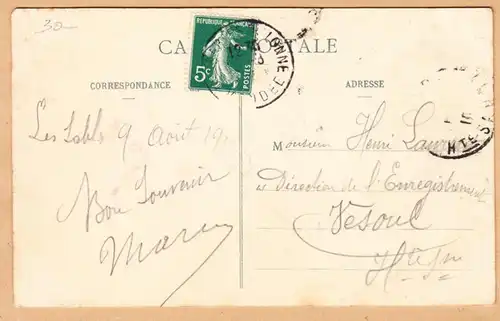 30-
RÉPUBLIQUE FRANÇAISE
5c
POSTES
LONNE
VENDÉE
CORRESPONDANCE
ADRESSE
Les Sables 9 Août 19
Bon Souvenir
Monsieur Henri
Direction de l'Enregistrement
Vesoul
Hte Sne